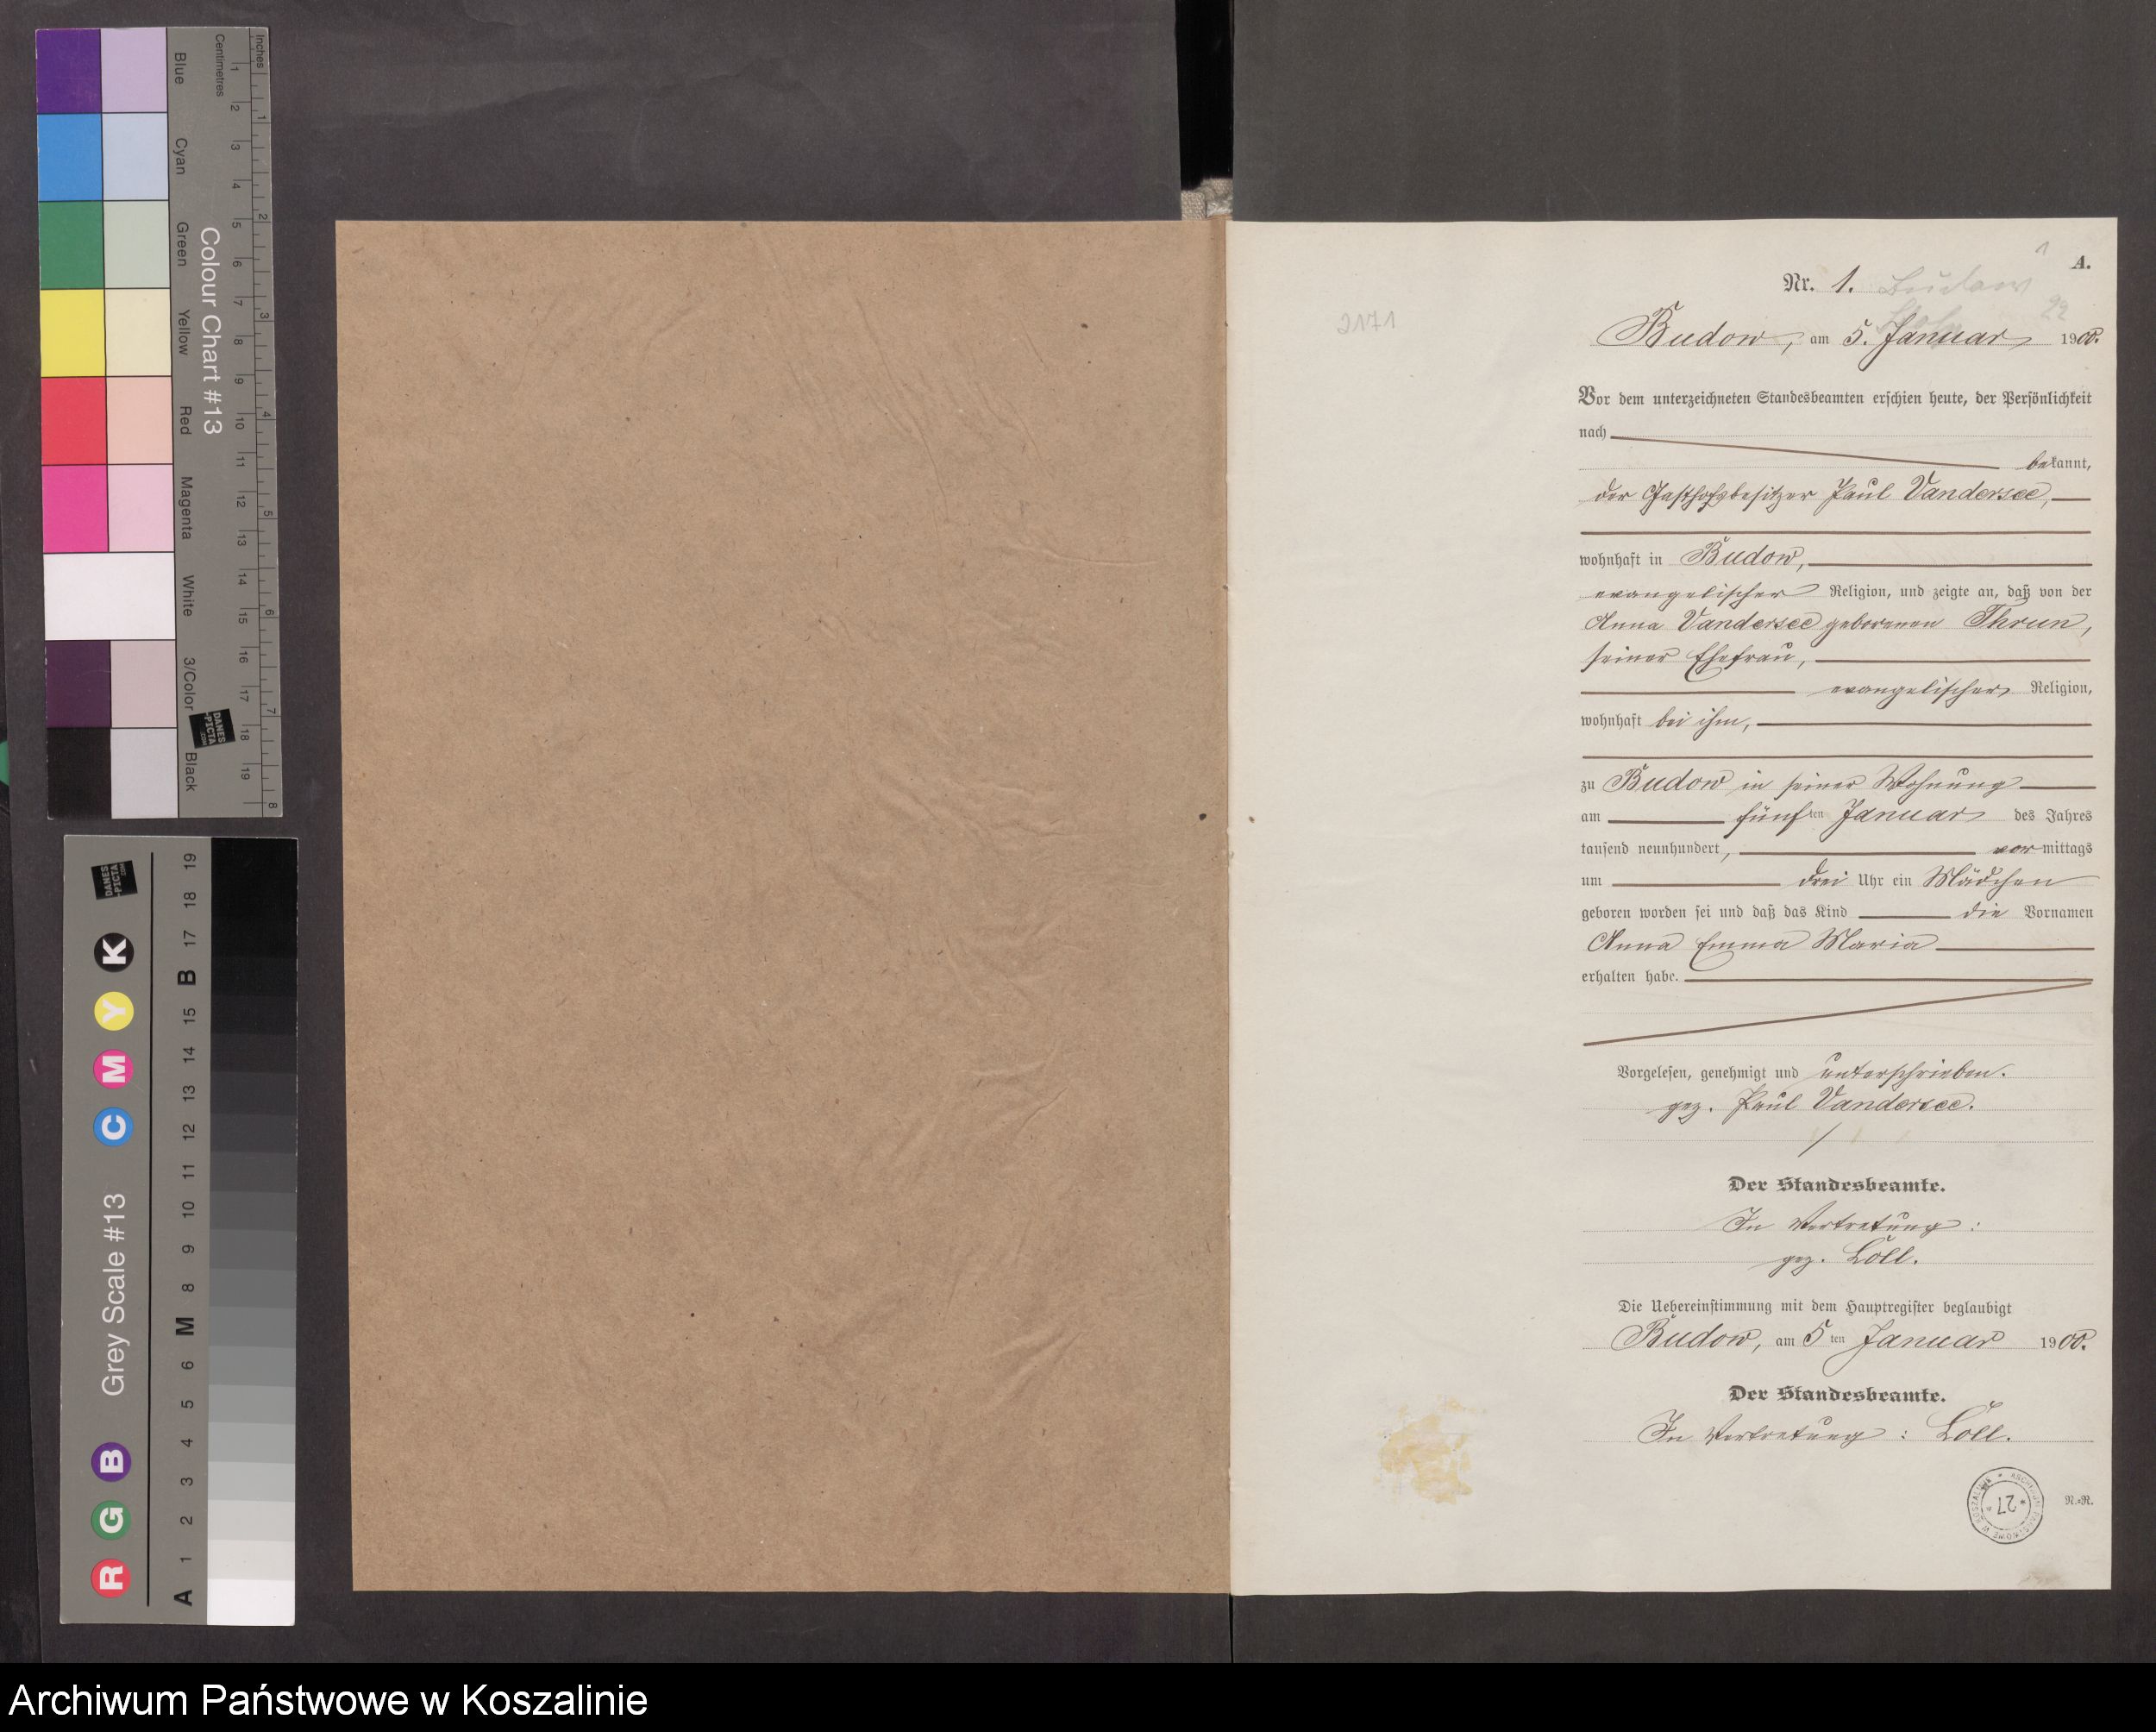 A.
1
Nr. 1.
22
2171
Budow, am 5. Januar 1900.
Vor dem unterzeichneten Standesbeamten erschien heute, der Persönlichkeit
nach
bekannt,
der Gasthofsbesitzer Paul Vandersee,
wohnhaft in Budow,
evangelischer Religion, und zeigte an, daß von der
Anna Vandersee geborenen Thrun,
seiner Ehefrau,
evangelischer Religion,
wohnhaft bei ihm,
zu Budow in seiner Wohnung
am fünften Januar des Jahres
tausend neunhundert, vormittags
um drei Uhr ein Mädchen
geboren worden sei und daß das Kind die Vornamen
Anna Emma Maria
erhalten habe.
Vorgelesen, genehmigt und unterschrieben.
gez. Paul Vandersee.
Der Standesbeamte.
In Vertretung:
gez. Löll.
Die Uebereinstimmung mit dem Hauptregister beglaubigt
Budow, am 5ten Januar 1900.
Der Standesbeamte.
In Vertretung: Löll.
ARCHIWUM PAŃSTWOWE W KOSZALINIE
* 27 *
Colour Chart #13
Blue
Cyan
Green
Yellow
Red
Magenta
White
3/Color
Black
Centimetres
Inches
1 2 3 4 5 6 7 8 9 10 11 12 13 14 15 16 17 18 19
1 2 3 4 5 6 7 8
DANES
-PICTA
.COM
Grey Scale #13
R G B C M Y K
A 1 2 3 4 5 6 M 8 9 10 11 12 13 14 15 B 17 18 19
DANES
-PICTA
.COM
Archiwum Państwowe w Koszalinie